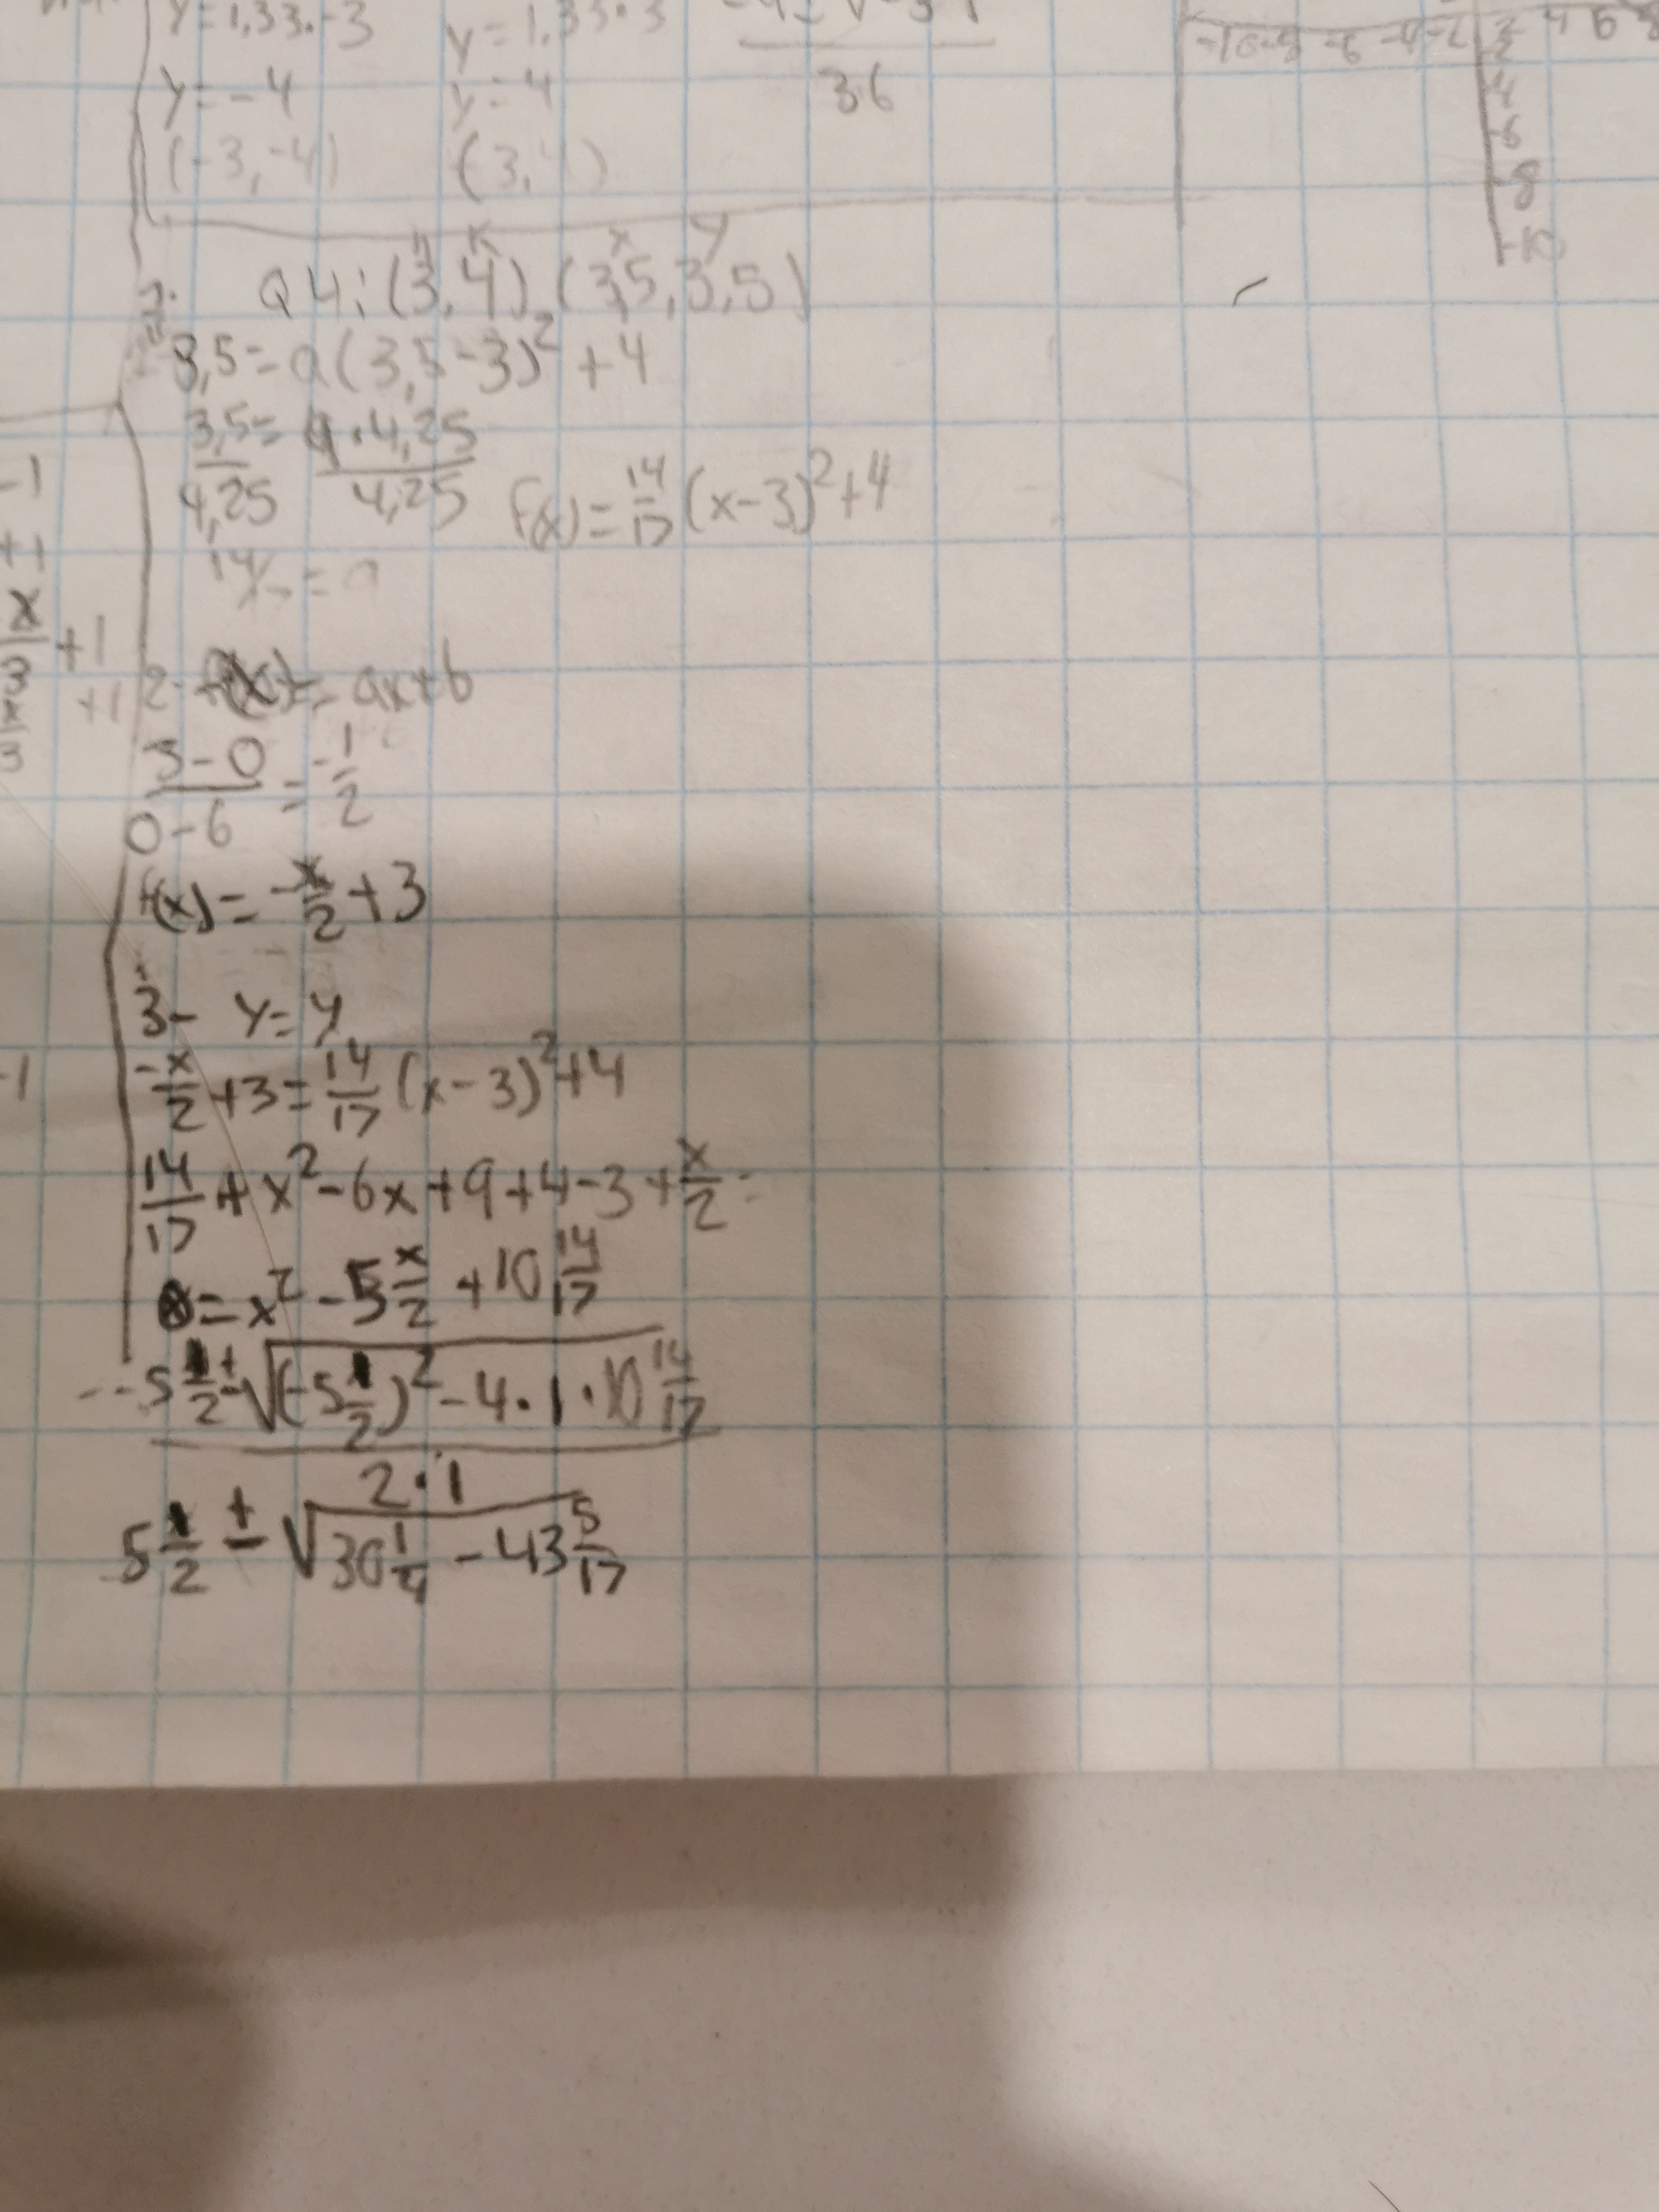 y=1,33·-3
y=1,33·3
y=-4
y=4
36
(-3,-4)
(3,
-10 -8 -6 -4 -2 2 4 6 8
-2
-4
-6
-8
-10
h k x y
Q4: (3,4) (3,5,3,5)
3,5=a(3,5-3)²+4
3,5=a·4,25
4,25 4,25
f(x)=14/17(x-3)²+4
14/ =a
-1
+1
x/3 +1
+1
3
2- f(x)= ax+b
3-0/0-6 = -1/2
f(x)= -x/2+3
3- y=y
-1
-x/2+3=14/17(x-3)²+4
14/17+x²-6x+9+4-3+x/2=
0=x²-5x/2+10 14/17
--5 1/2±√(-5 1/2)²-4·1·10 14/17
2·1
5 1/2 ± √30 1/4 -43 5/17